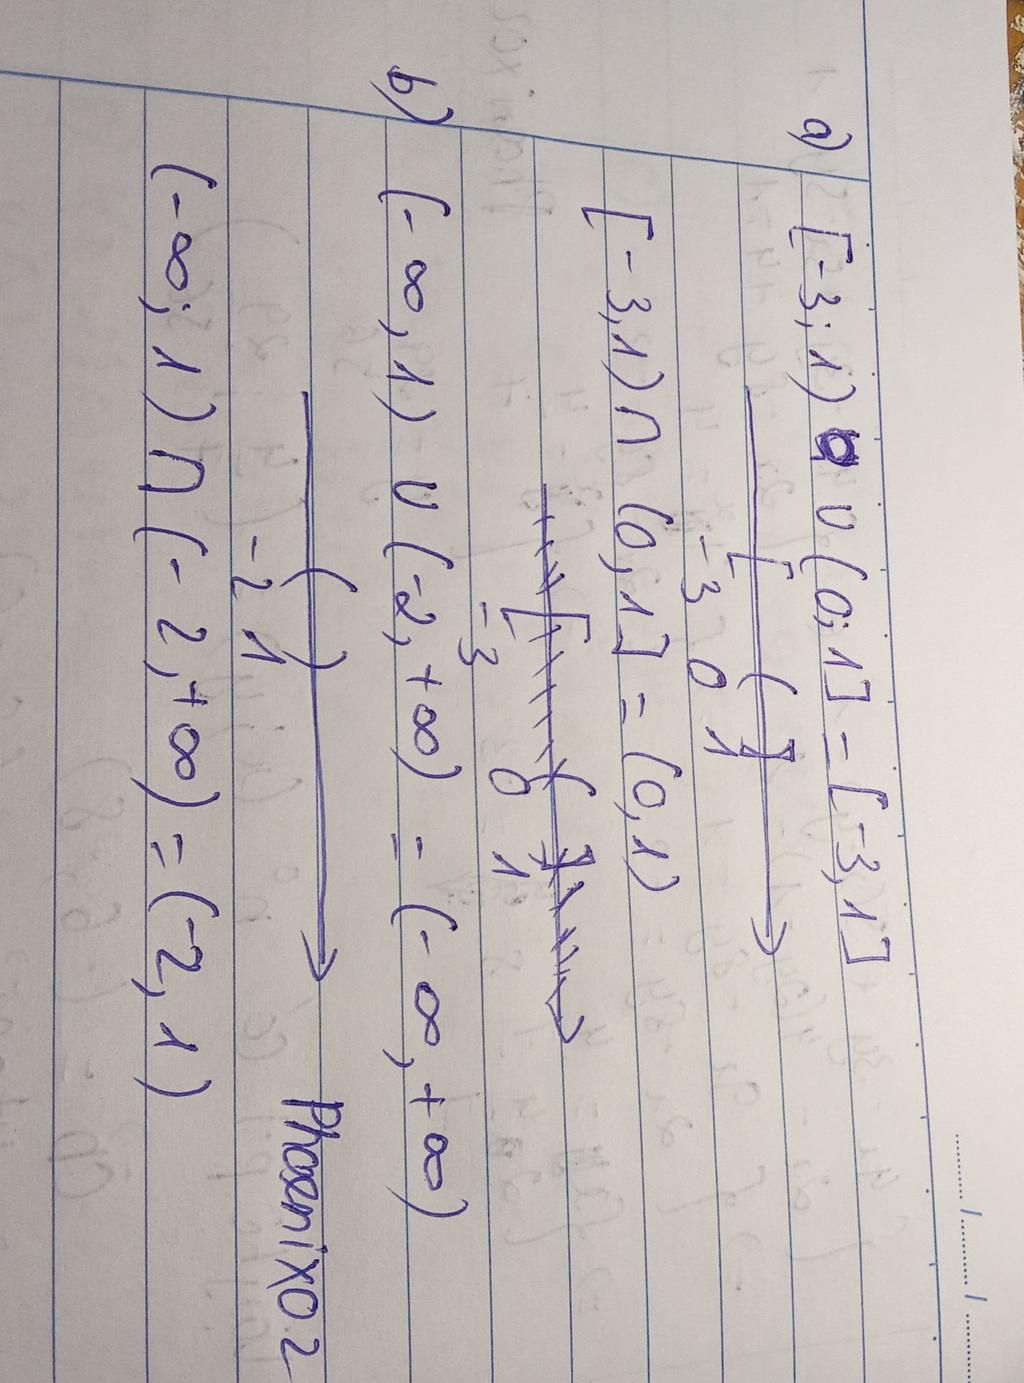 a) [-3; 1) ∪ (0; 1] = [-3, 1]
-3 0 1
[-3, 1) ∩ (0, 1] = (0, 1)
-3 0 1
b) (-∞, 1) ∪ (-2, +∞) = (-∞, +∞)
-2 1
(-∞; 1) ∩ (-2, +∞) = (-2, 1)
PhoenixO2